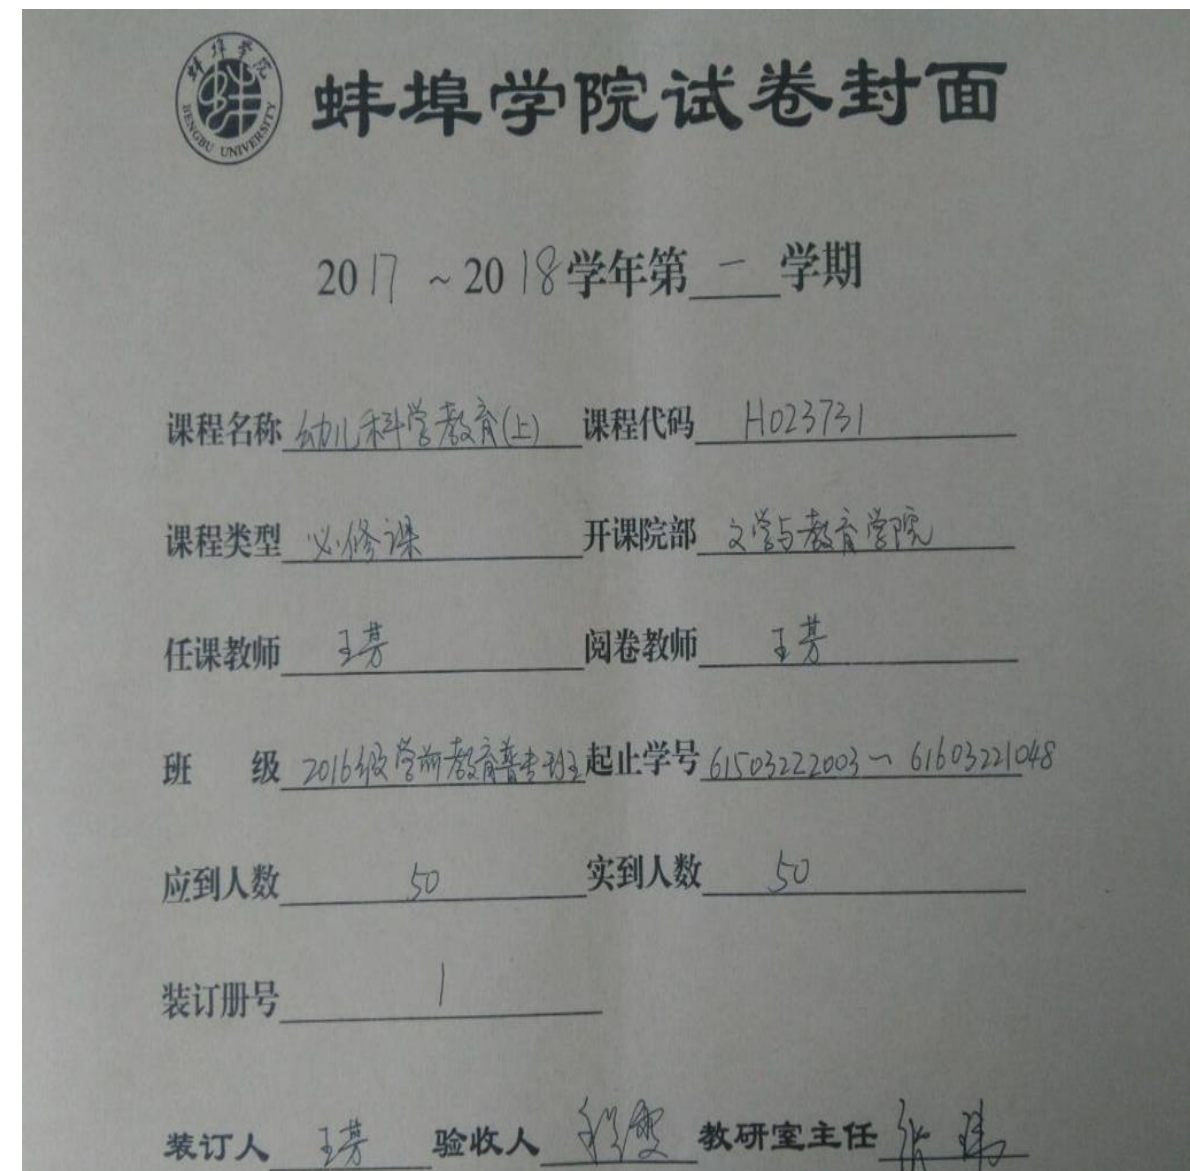 蚌埠学院
BENGBU UNIVERSITY
蚌埠学院试卷封面
2017 ~ 2018 学年第 一 学期
课程名称 幼儿科学教育(上) 课程代码 H023731
课程类型 必修课 开课院部 文学与教育学院
任课教师 王芳 阅卷教师 王芳
班 级 2016级学前教育普专班 起止学号 61503222003~61603221048
应到人数 50 实到人数 50
装订册号 1
装订人 王芳 验收人 教研室主任 张